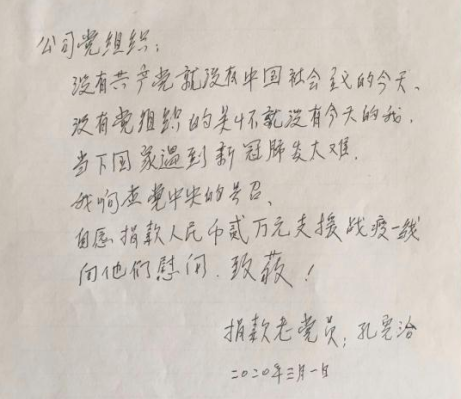 公司党组织：
没有共产党就没有中国社会主义的今天、
没有党组织的关怀就没有今天的我.
当下国家遇到新冠肺炎大难.
我响应党中央的号召、
自愿捐款人民币贰万元支援战疫一线
向他们慰问.致敬！
捐款老党员：孔宪治
二〇二〇年三月一日